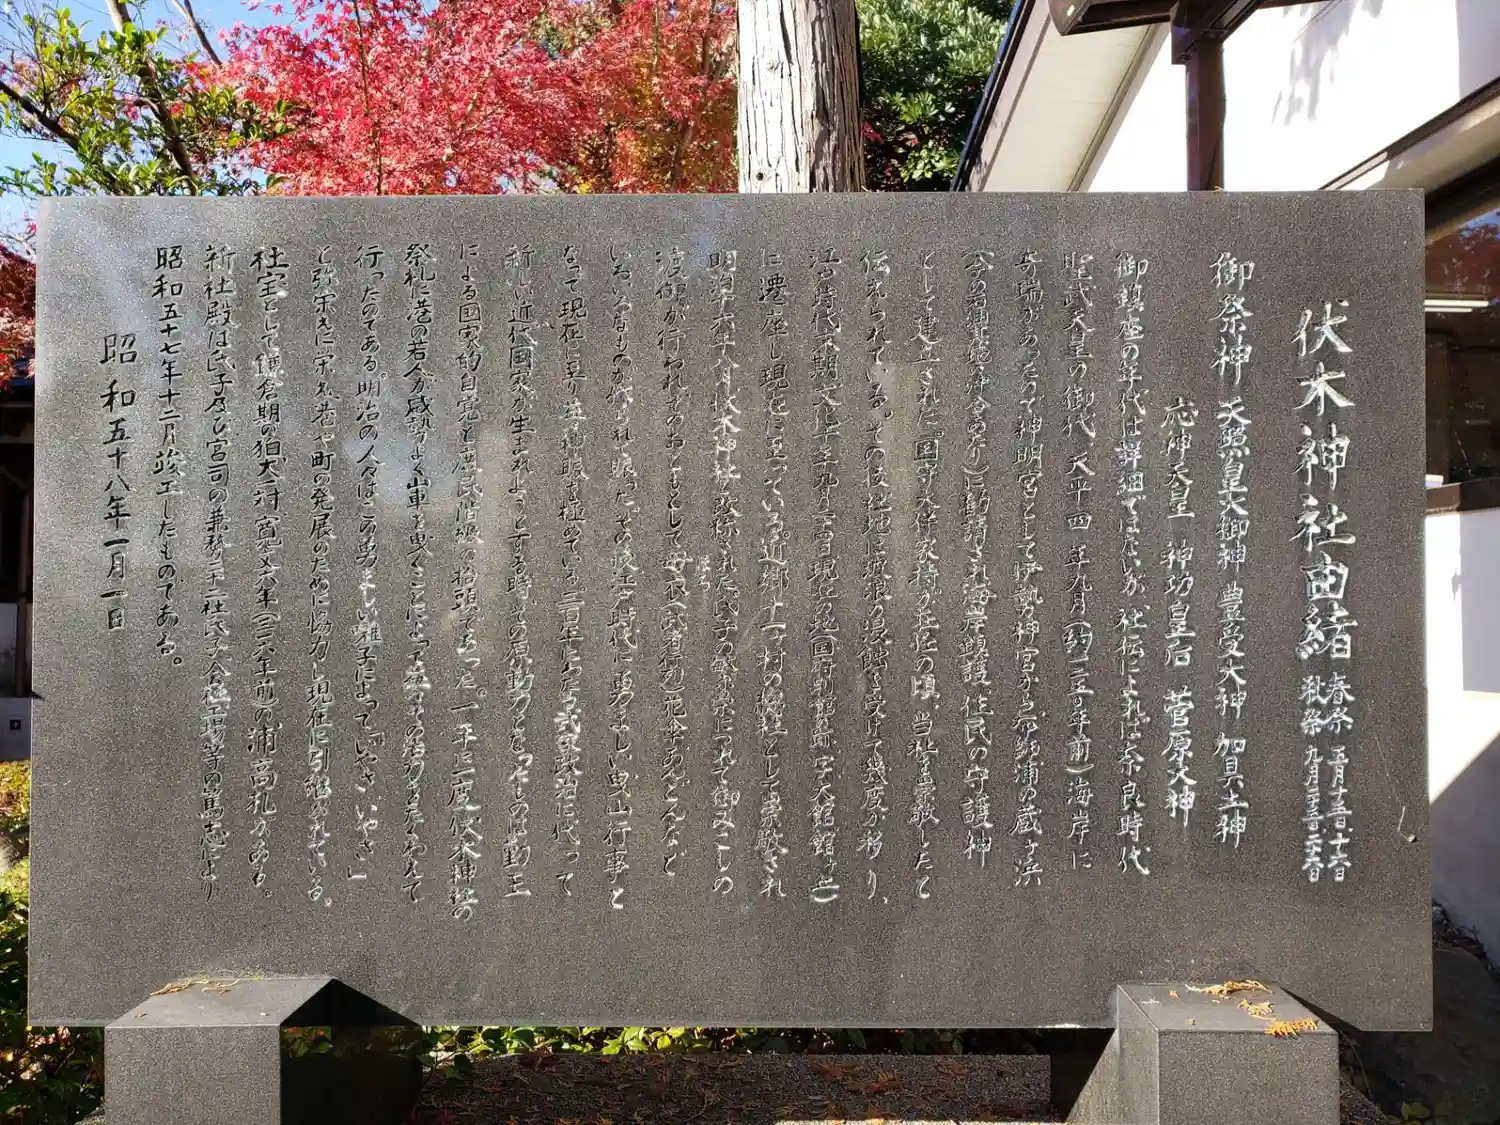 伏木神社由緒 春祭 五月十五日、十六日
秋祭 九月二十五日 二十六日
御祭神 天照皇大御神 豊受大神 加具土神
応神天皇 神功皇后 菅原大神
御鎮座の年代は詳細ではないが、社伝によれば奈良時代
聖武天皇の御代 天平四年九月(約一二五〇年前)海岸に
奇瑞があったので神明宮として伊勢の神宮から布師浦の蔵ヶ浜
に勧請され海岸鎮護 住民の守護神
として建立された。国守大伴家持が在任の頃、当社を崇敬したと
伝えられている。その後社地は波浪の浸蝕を受けて幾度か移り、
江戸時代末期、文化十年九月二四日現在の地(国府別館の跡、字大館館ヶ丘)
に遷座し現在に至っている。近郷十一ヶ村の総社として崇敬され
明治六年八月伏木神社と改称された。氏子の繁栄につれて御みこしの
渡御が行われそのおともとして母衣(武者行列)花傘あんどんなど
ほろ
いろいろなものが代られ賑った。その後江戸時代に勇ましい曳山行事と
なって現在に至り益々賑を極めている。三百年にわたる武家政治に代って
新しい近代国家が生まれようとする時、その原動力となったものは勤王
による国家的自覚と庶民階級の抬頭であった。一年に一度伏木神社の
祭礼に港の若人が威勢よく山車を曳くことによって益々その活力をたくわえて
行ったのである。明治の人々はこの勇ましい囃子によって「いやさ、いやさ」
と弥栄えに栄え、港や町の発展のために協力し現在に引継がれている。
社宝として鎌倉期の狛犬一対、寛文六年(三一六年前)の浦高札がある。
新社殿は氏子及び宮司の兼務二十二社氏子、会社工場等の篤志により
昭和五十七年十二月竣工したものである。
昭和五十八年一月一日